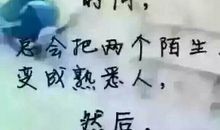 时间，
总会把两个陌生
变成熟悉人，
然后，